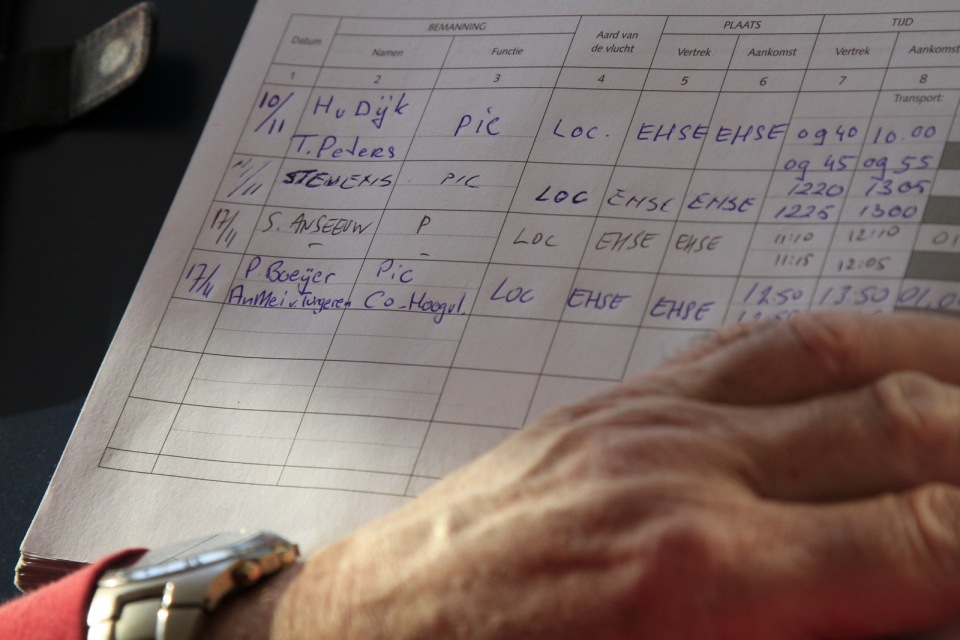 BEMANNING PLAATS TIJD
Datum Namen Functie Aard van de vlucht Vertrek Aankomst Vertrek Aankomst
1 2 3 4 5 6 7 8
Transport:
10/11 H v Dijk PiC LOC. EHSE EHSE 0940 10.00
T. Peters 09 45 09 55
/11 STEVENS PIC LOC EHSE EHSE 1220 1305
1225 1300
17/11 S. ANSEEUW P LOC EHSE EHSE 11:10 12:10
11:15 12:05
17/11 P. Boeijer Pic LOC EHSE EHSE 12.50 13.50 01.0
Co-